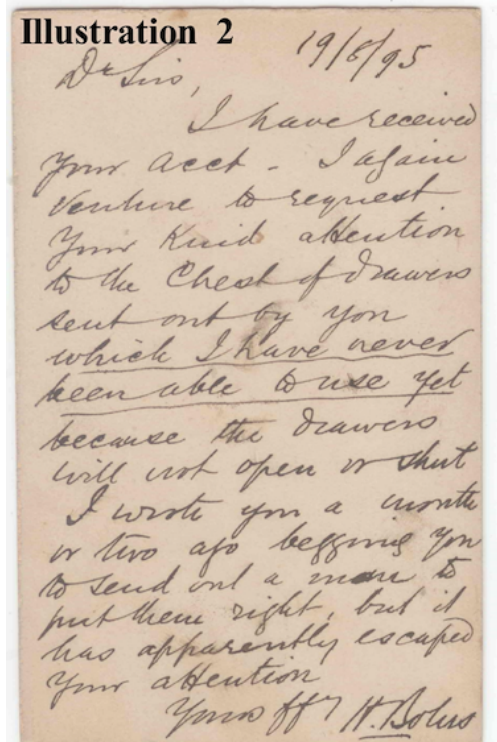 Illustration 2
19/8/95
Dr Sirs,
I have received
your acct - I again
venture to request
your kind attention
to the Chest of drawers
sent out by you
which I have never
been able to use yet
because the drawers
will not open or shut
I wrote you a month
or two ago begging you
to send out a man to
put them right, but it
has apparently escaped
your attention
Yours ff
H. Bolus